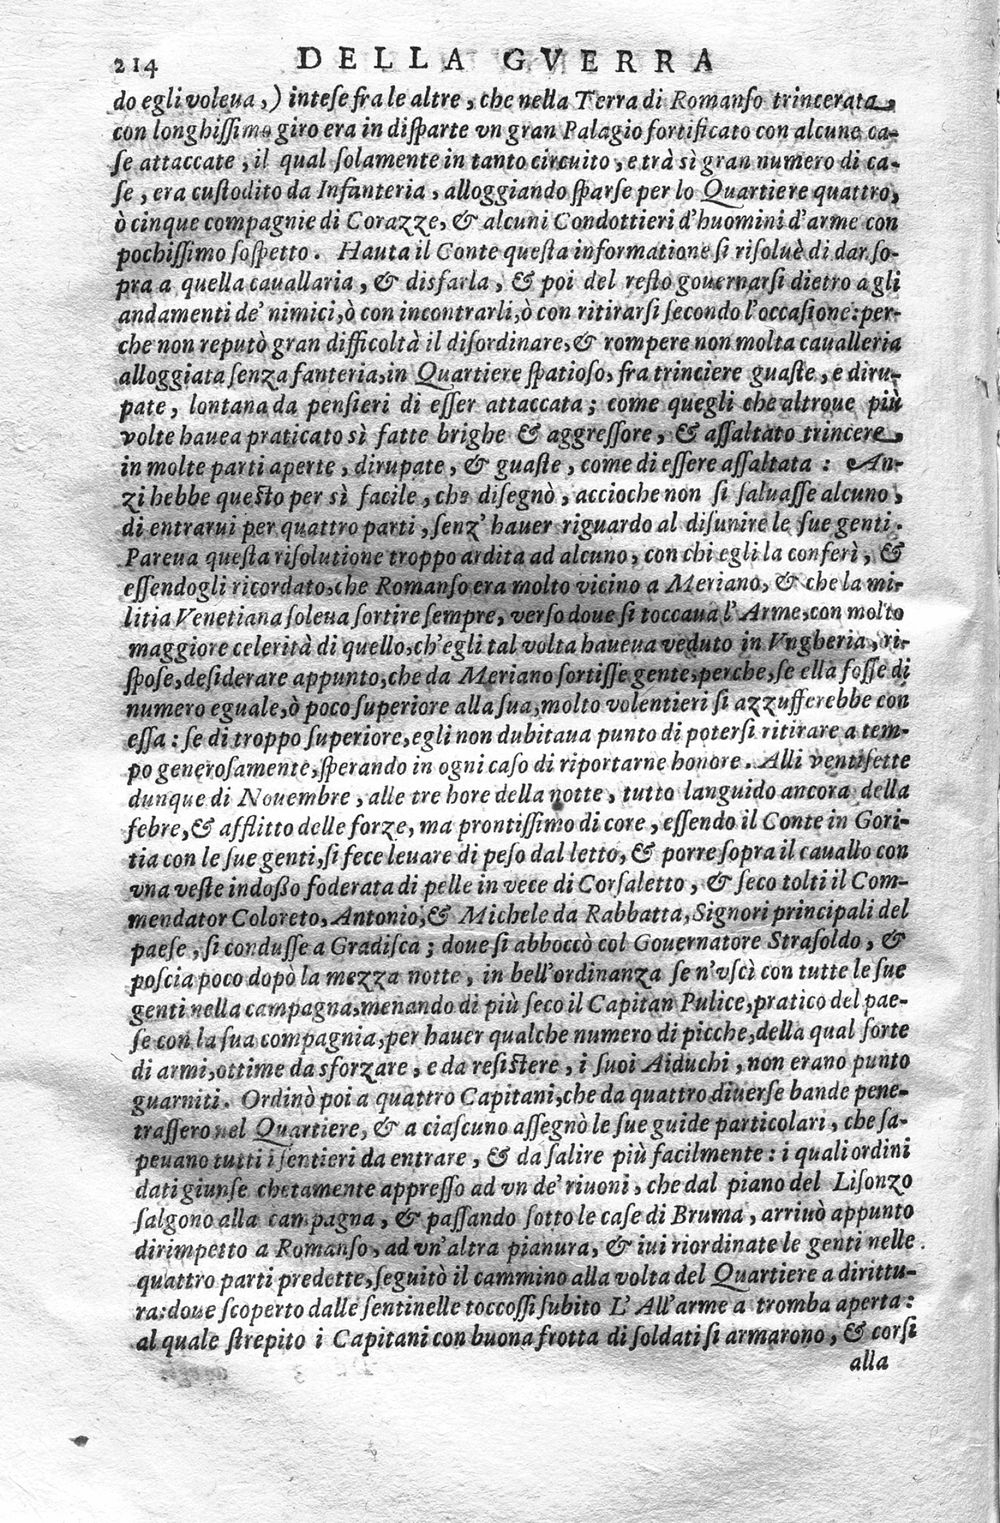 214 DELLA GVERRA
do egli voleua,) intese fra le altre, che nella Terra di Romanso trincerata,
con longhissimo giro era in disparte vn gran Palagio fortificato con alcune ca-
se attaccate, il qual solamente in tanto circuito, e trà sì gran numero di ca-
se, era custodito da Infanteria, alloggiando sparse per lo Quartiere quattro,
ò cinque compagnie di Corazze, & alcuni Condottieri d'huomini d'arme con
pochissimo sospetto. Hauta il Conte questa informatione si risoluè di dar so-
pra a quella cauallaria, & disfarla, & poi del resto gouernarsi dietro agli
andamenti de' nimici, ò con incontrarli, ò con ritirarsi secondo l'occasione: per-
che non reputò gran difficoltà il disordinare, & rompere non molta caualleria
alloggiata senza fanteria, in Quartiere spatioso, fra trinciere guaste, e diru-
pate, lontana da pensieri di esser attaccata; come quegli che altroue più
volte hauea praticato sì fatte brighe & aggressore, & assaltato trincere,
in molte parti aperte, dirupate, & guaste, come di essere assaltata: An-
zi hebbe questo per sì facile, che disegnò, accioche non si saluasse alcuno,
di entrarui per quattro parti, senz' hauer riguardo al disunire le sue genti.
Pareua questa risolutione troppo ardita ad alcuno, con chi egli la conferì, &
essendogli ricordato, che Romanso era molto vicino a Meriano, & che la mi-
litia Venetiana soleua sortire sempre, verso doue si toccaua l'Arme, con molto
maggiore celerità di quello, ch'egli tal volta haueua veduto in Vngheria, ri-
spose, desiderare appunto, che da Meriano sortisse gente, perche, se ella fosse di
numero eguale, ò poco superiore alla sua, molto volentieri si azzufferebbe con
essa: se di troppo superiore, egli non dubitaua punto di potersi ritirare a tem-
po generosamente, sperando in ogni caso di riportarne honore. Alli ventisette
dunque di Nouembre, alle tre hore della notte, tutto languido ancora della
febre, & afflitto delle forze, ma prontissimo di core, essendo il Conte in Gori-
tia con le sue genti, si fece leuare di peso dal letto, & porre sopra il cauallo con
vna veste indosso foderata di pelle in vece di Corsaletto, & seco tolti il Com-
mendator Coloreto, Antonio, & Michele da Rabbatta, Signori principali del
paese, si condusse a Gradisca; doue si abboccò col Gouernatore Strasoldo, &
poscia poco dopò la mezza notte, in bell'ordinanza se n'vscì con tutte le sue
genti nella campagna, menando di più seco il Capitan Pulice, pratico del pae-
se con la sua compagnia, per hauer qualche numero di picche, della qual sorte
di armi, ottime da sforzare, e da resistere, i suoi Aiduchi, non erano punto
guarniti. Ordinò poi a quattro Capitani, che da quattro diuerse bande pene-
trassero nel Quartiere, & a ciascuno assegnò le sue guide particolari, che sa-
peuano tutti i sentieri da entrare, & da salire più facilmente: i quali ordini
dati giunse chetamente appresso ad vn de' riuoni, che dal piano del Lisonzo
salgono alla campagna, & passando sotto le case di Bruma, arriuò appunto
dirimpetto a Romanso, ad vn'altra pianura, & iui riordinate le genti nelle
quattro parti predette, seguitò il cammino alla volta del Quartiere a dirittu-
ra: doue scoperto dalle sentinelle toccossi subito L'All'arme a tromba aperta:
al quale strepito i Capitani con buona frotta di soldati si armarono, & corsi
alla